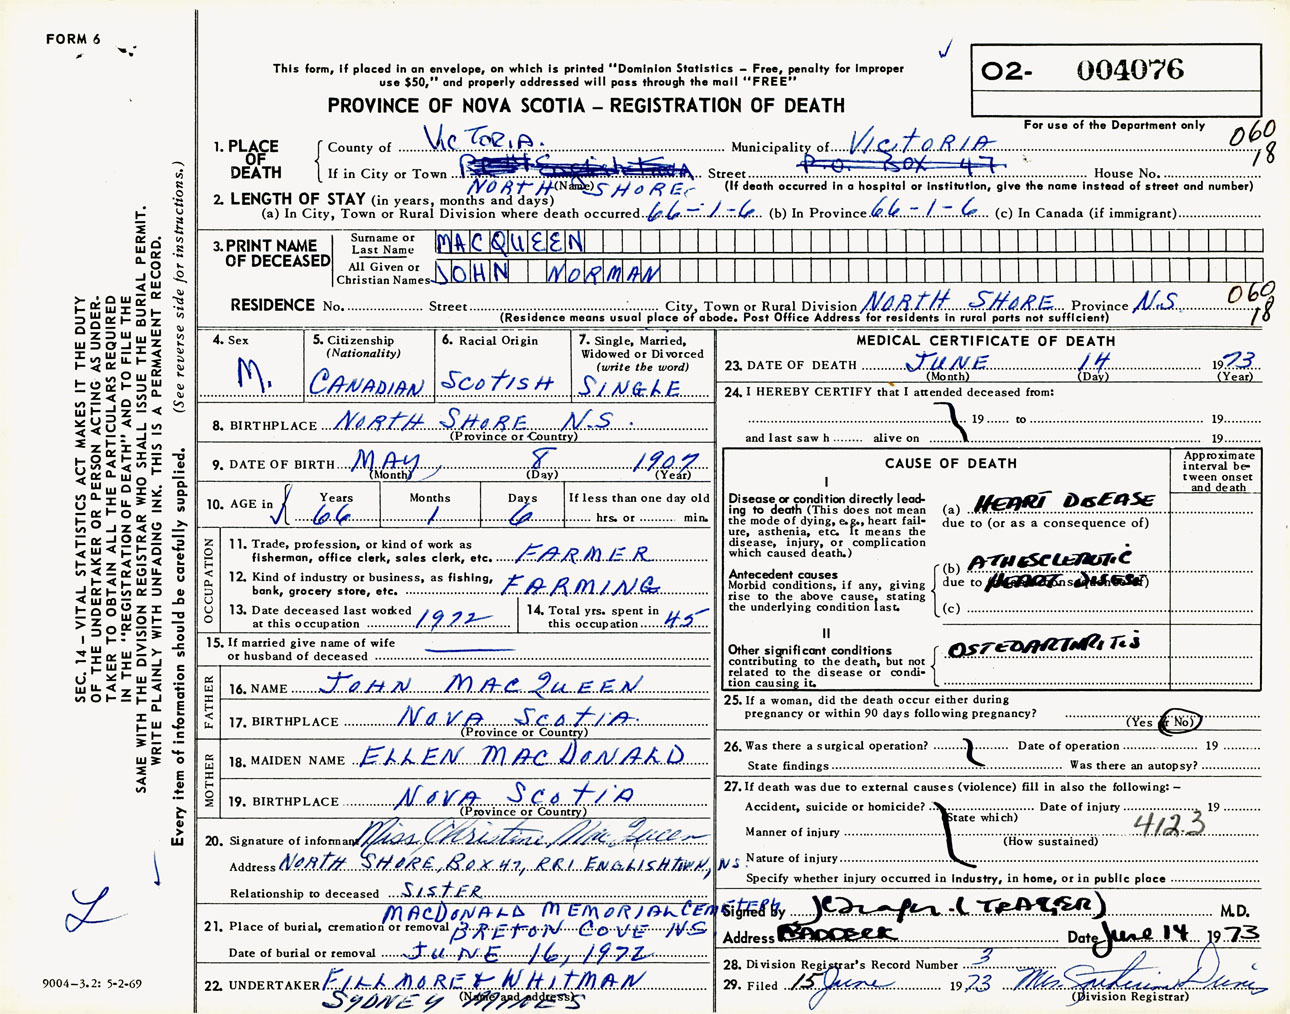 FORM 6
This form, if placed in an envelope, on which is printed "Dominion Statistics – Free, penalty for improper
use $50," and properly addressed will pass through the mail "FREE"
PROVINCE OF NOVA SCOTIA – REGISTRATION OF DEATH
02- 004076
For use of the Department only
060
18
1. PLACE OF DEATH
County of VICTORIA. Municipality of VICTORIA
If in City or Town Street P.O. BOX 47 House No.
NORTH SHORE (Name) (If death occurred in a hospital or institution, give the name instead of street and number)
2. LENGTH OF STAY (in years, months and days)
(a) In City, Town or Rural Division where death occurred. 66-1-6 (b) In Province 66-1-6 (c) In Canada (if immigrant)
3. PRINT NAME OF DECEASED
Surname or Last Name MACQUEEN
All Given or Christian Names JOHN NORMAN
RESIDENCE No. Street City, Town or Rural Division NORTH SHORE Province N.S.
060
18
(Residence means usual place of abode. Post Office Address for residents in rural parts not sufficient)
4. Sex
M.
5. Citizenship
(Nationality)
CANADIAN
6. Racial Origin
SCOTISH
7. Single, Married,
Widowed or Divorced
(write the word)
SINGLE
8. BIRTHPLACE NORTH SHORE N.S.
(Province or Country)
9. DATE OF BIRTH MAY, 8 1907
(Month) (Day) (Year)
10. AGE in Years Months Days If less than one day old
66 1 6 hrs. or min.
OCCUPATION
11. Trade, profession, or kind of work as
fisherman, office clerk, sales clerk, etc. FARMER
12. Kind of industry or business, as fishing,
bank, grocery store, etc. FARMING
13. Date deceased last worked
at this occupation 1972
14. Total yrs. spent in
this occupation 45
15. If married give name of wife
or husband of deceased
FATHER
16. NAME JOHN MACQUEEN
17. BIRTHPLACE NOVA SCOTIA.
(Province or Country)
MOTHER
18. MAIDEN NAME ELLEN MACDONALD
19. BIRTHPLACE NOVA SCOTIA
(Province or Country)
20. Signature of informant Miss Christine MacQueen
Address NORTH SHORE, BOX 47, RR1. ENGLISHTOWN, NS.
Relationship to deceased SISTER
MACDONALD MEMORIAL CEMETERY
21. Place of burial, cremation or removal BRETON COVE NS
Date of burial or removal JUNE 16, 1972
22. UNDERTAKER FILLMORE & WHITMAN
(Name and address)
SYDNEY MINES
MEDICAL CERTIFICATE OF DEATH
23. DATE OF DEATH JUNE 14 1973
(Month) (Day) (Year)
24. I HEREBY CERTIFY that I attended deceased from:
19 to 19
and last saw h alive on 19
CAUSE OF DEATH
Approximate
interval be-
tween onset
and death
I
Disease or condition directly lead-
ing to death (This does not mean
the mode of dying, e.g., heart fail-
ure, asthenia, etc. It means the
disease, injury, or complication
which caused death.)
(a) HEART DISEASE
due to (or as a consequence of)
Antecedent causes
Morbid conditions, if any, giving
rise to the above cause, stating
the underlying condition last.
(b) ATHESCLEROTIC
due to HEART DISEASE
(c)
II
Other significant conditions
contributing to the death, but not
related to the disease or condi-
tion causing it.
OSTEOARTHRITIS
25. If a woman, did the death occur either during
pregnancy or within 90 days following pregnancy?
(Yes or No)
26. Was there a surgical operation? Date of operation 19
State findings Was there an autopsy?
27. If death was due to external causes (violence) fill in also the following: –
Accident, suicide or homicide? Date of injury 19
(State which)
Manner of injury 4123
(How sustained)
Nature of injury
Specify whether injury occurred in industry, in home, or in public place
Signed by M.D.
Address BADDECK Date June 14 1973
28. Division Registrar's Record Number 3
29. Filed 15 June 1973 Mrs.
(Division Registrar)
SEC. 14 – VITAL STATISTICS ACT MAKES IT THE DUTY
OF THE UNDERTAKER OR PERSON ACTING AS UNDER-
TAKER TO OBTAIN ALL THE PARTICULARS REQUIRED
IN THE "REGISTRATION OF DEATH" AND TO FILE THE
SAME WITH THE DIVISION REGISTRAR WHO SHALL ISSUE THE BURIAL PERMIT.
WRITE PLAINLY WITH UNFADING INK. THIS IS A PERMANENT RECORD.
Every item of information should be carefully supplied. (See reverse side for instructions.)
9004-3.2: 5-2-69